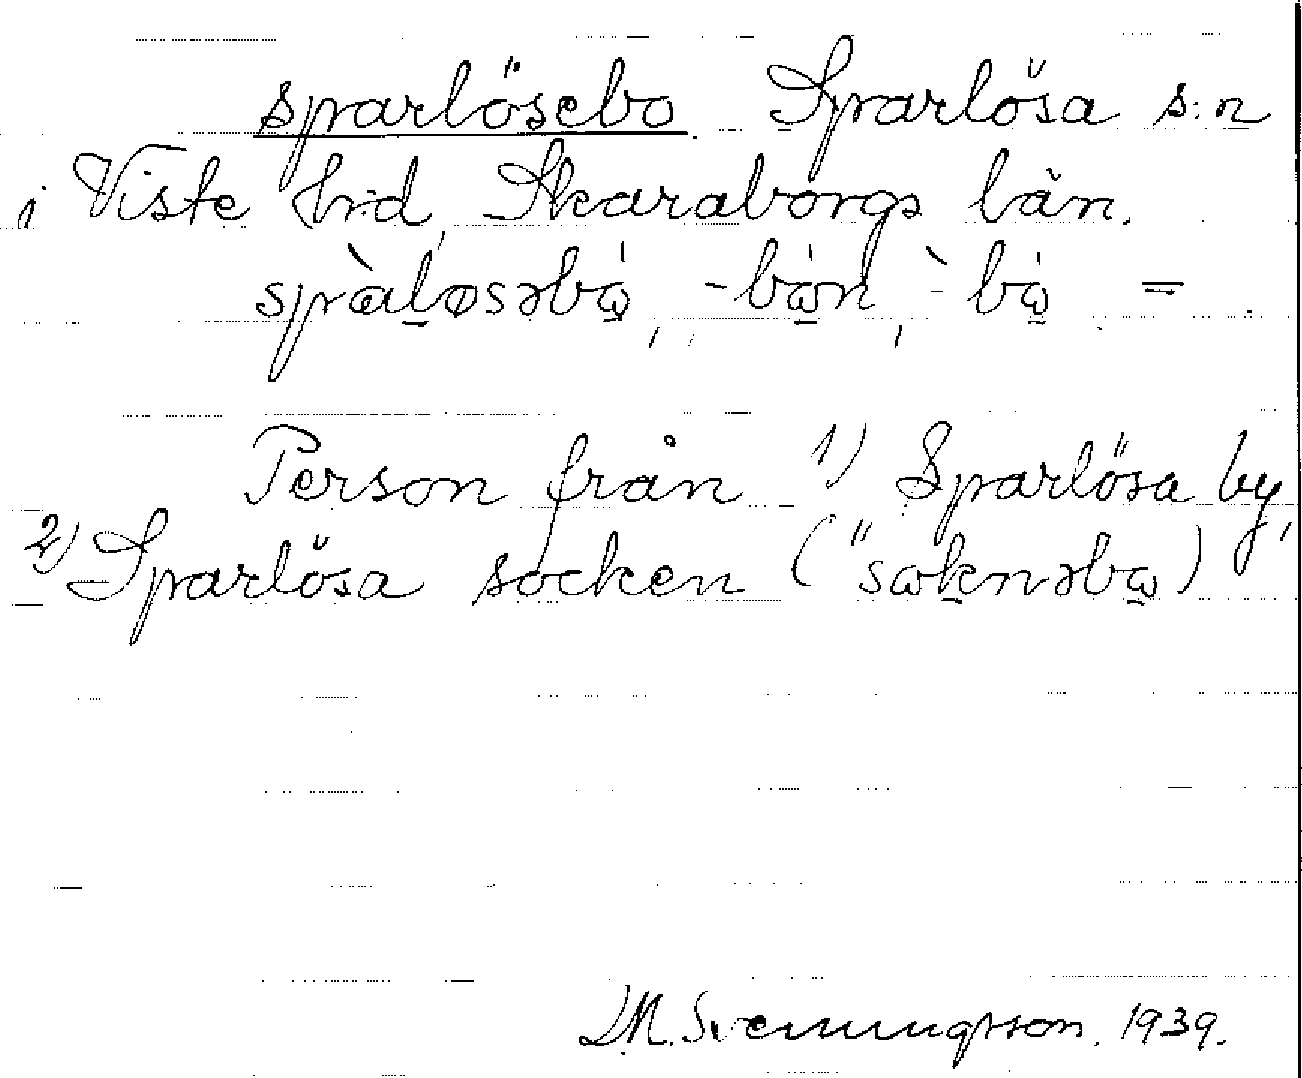 sparlösebo Sparlösa s:n
i Viste hrd, Skaraborgs län.
spàḷøsəbω̱̇, -bω̱̇n, `-bω̱̇ =.
Person från 1) Sparlösa by,
2) Sparlösa socken ("sωḵnəbω̱)
D.M. Svenningsson. 1939.